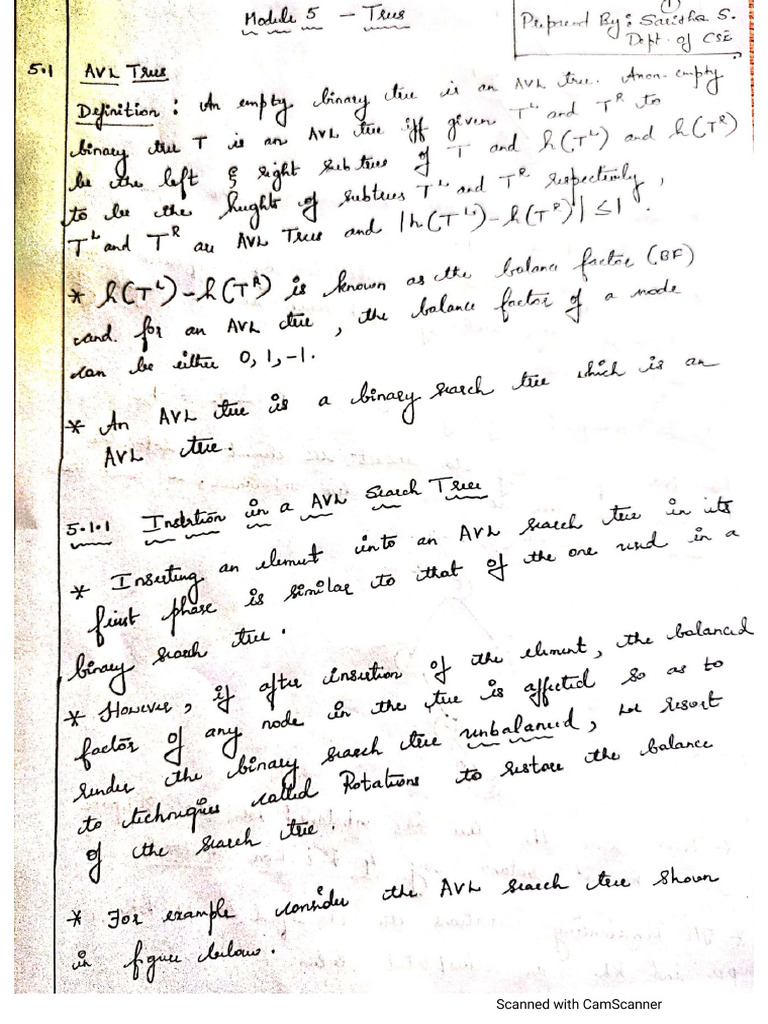 ①
Module 5 - Trees
Prepared By: Saritha S.
Dept. of CSE
5.1 AVL Trees
Definition: An empty binary tree is an AVL tree. A non-empty
binary tree T is an AVL tree iff given T^L and T^R to
be the left & right subtrees of T and h(T^L) and h(T^R)
to be the heights of subtrees T^L and T^R respectively,
T^L and T^R are AVL Trees and |h(T^L)-h(T^R)| ≤ 1.
* h(T^L)-h(T^R) is known as the balance factor (BF)
and for an AVL tree, the balance factor of a node
can be either 0, 1, -1.
* An AVL tree is a binary search tree which is an
AVL tree.
5.1.1 Insertion in a AVL Search Tree
* Inserting an element into an AVL search tree in its
first phase is similar to that of the one used in a
binary search tree.
* However, if after insertion of the element, the balanced
factor of any node in the tree is affected so as to
render the binary search tree unbalanced, we resort
to techniques called Rotations to restore the balance
of the search tree.
* For example consider the AVL search tree shown
in fgure below.
Scanned with CamScanner